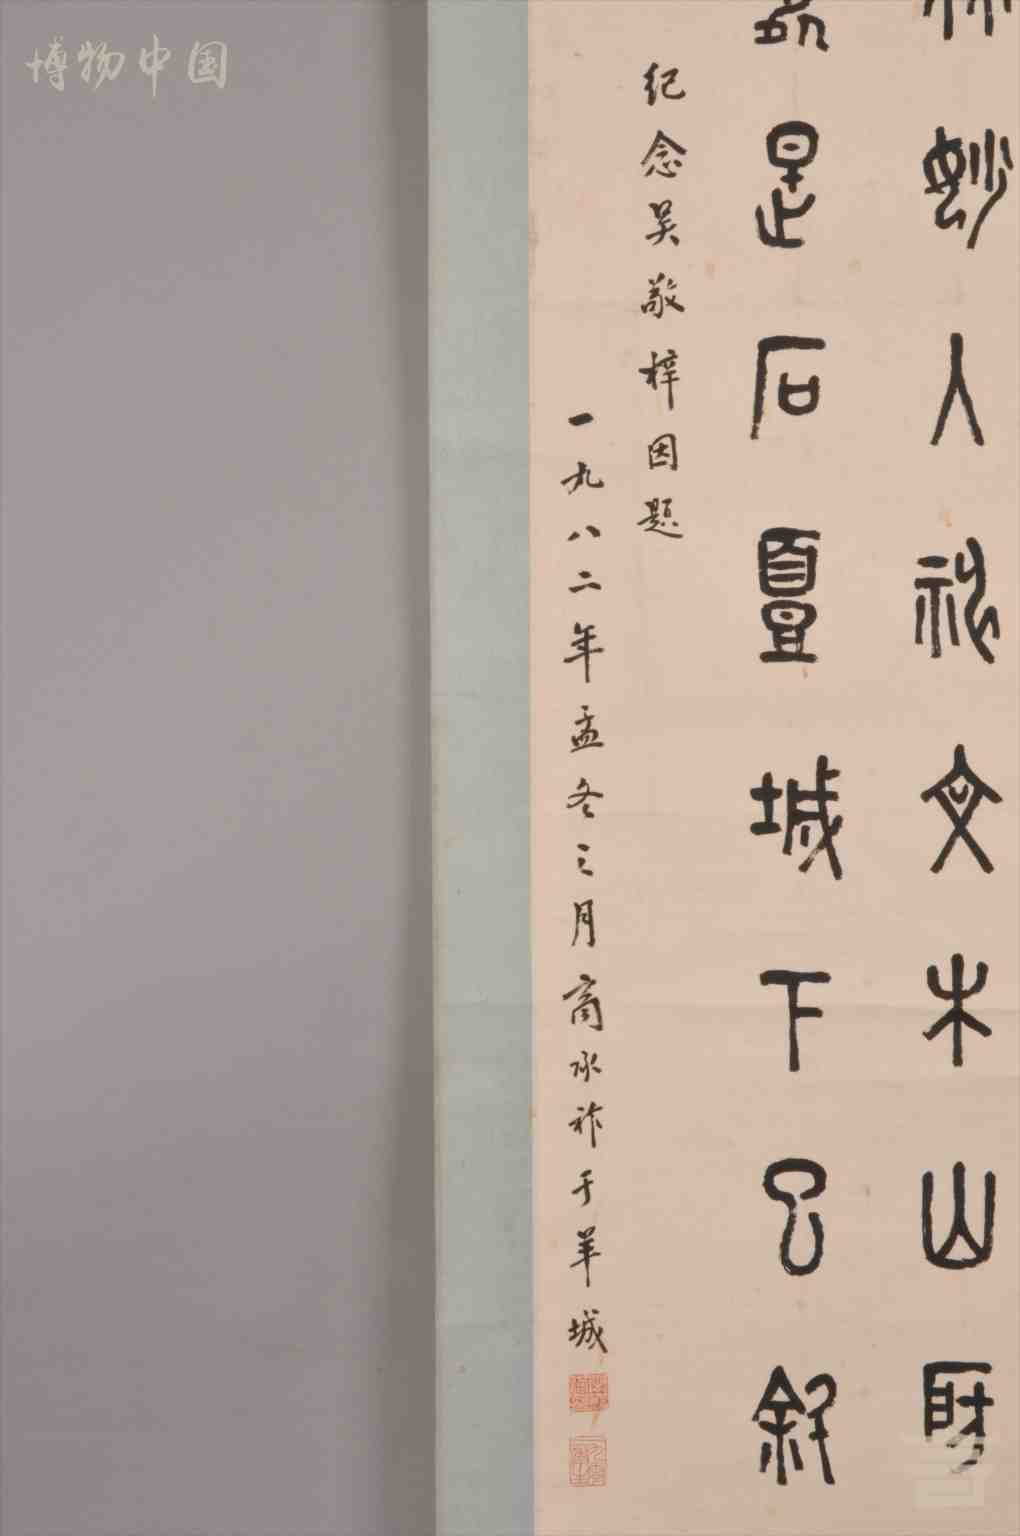 博物中国
妙人祕文木山房
是石疆城下公餘
纪念吴敬梓因题
一九八二年孟冬之月商承祚于羊城